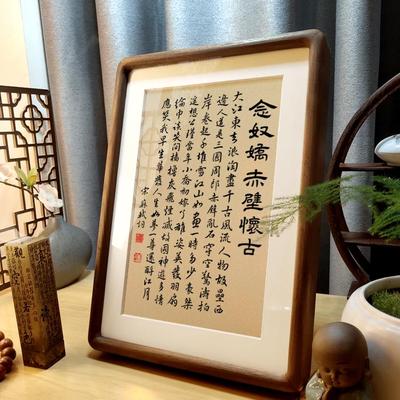 念奴嬌赤壁懷古
大江東去浪淘盡千古風流人物故壘西
邊人道是三國周郎赤壁亂石穿空驚濤拍
岸卷起千堆雪江山如畫一時多少豪傑
遙想公瑾當年小喬初嫁了雄姿英發羽扇
綸巾談笑間檣櫓灰飛煙滅故國神遊多情
應笑我早生華髮人生如夢一尊還酹江月
宋蘇軾詞
觀